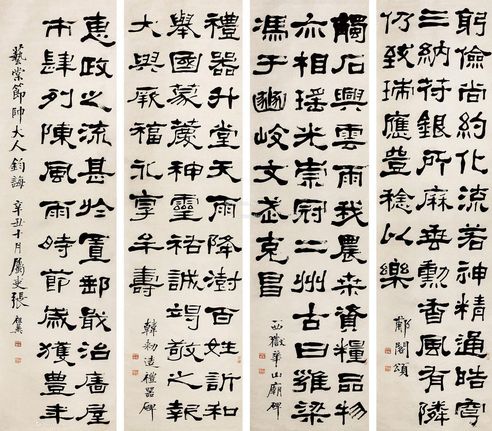 躬儉尚約化流若神精通晧穹
三納符銀所麻垂勳香風有隣
仍致瑞應豊稔以樂
郙閣頌
觸石興雲雨我農桒資糧品物
亦相瑶光崇冠二州古曰雍梁
馮于豳岐文武克昌
西嶽華山廟碑
禮器升堂天雨降澍百姓訢和
舉國蒙慶神靈祐誠竭敬之報
大與厥福永享牟壽
韓勑造禮器碑
惠政之流甚於置郵戢治廧屋
市肆列陳風雨時節歲獲豊年
藝棠節帥大人鈞誨 辛丑十月屬吏張